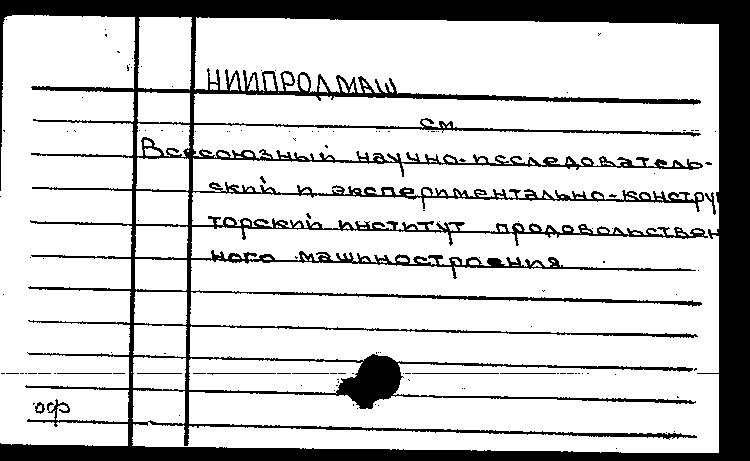 НИИПРОДМАШ
см
Всесоюзный научно-исследователь-
ский и экспериментально-конструк
торский институт продовольствен
ного машиностроения
оф